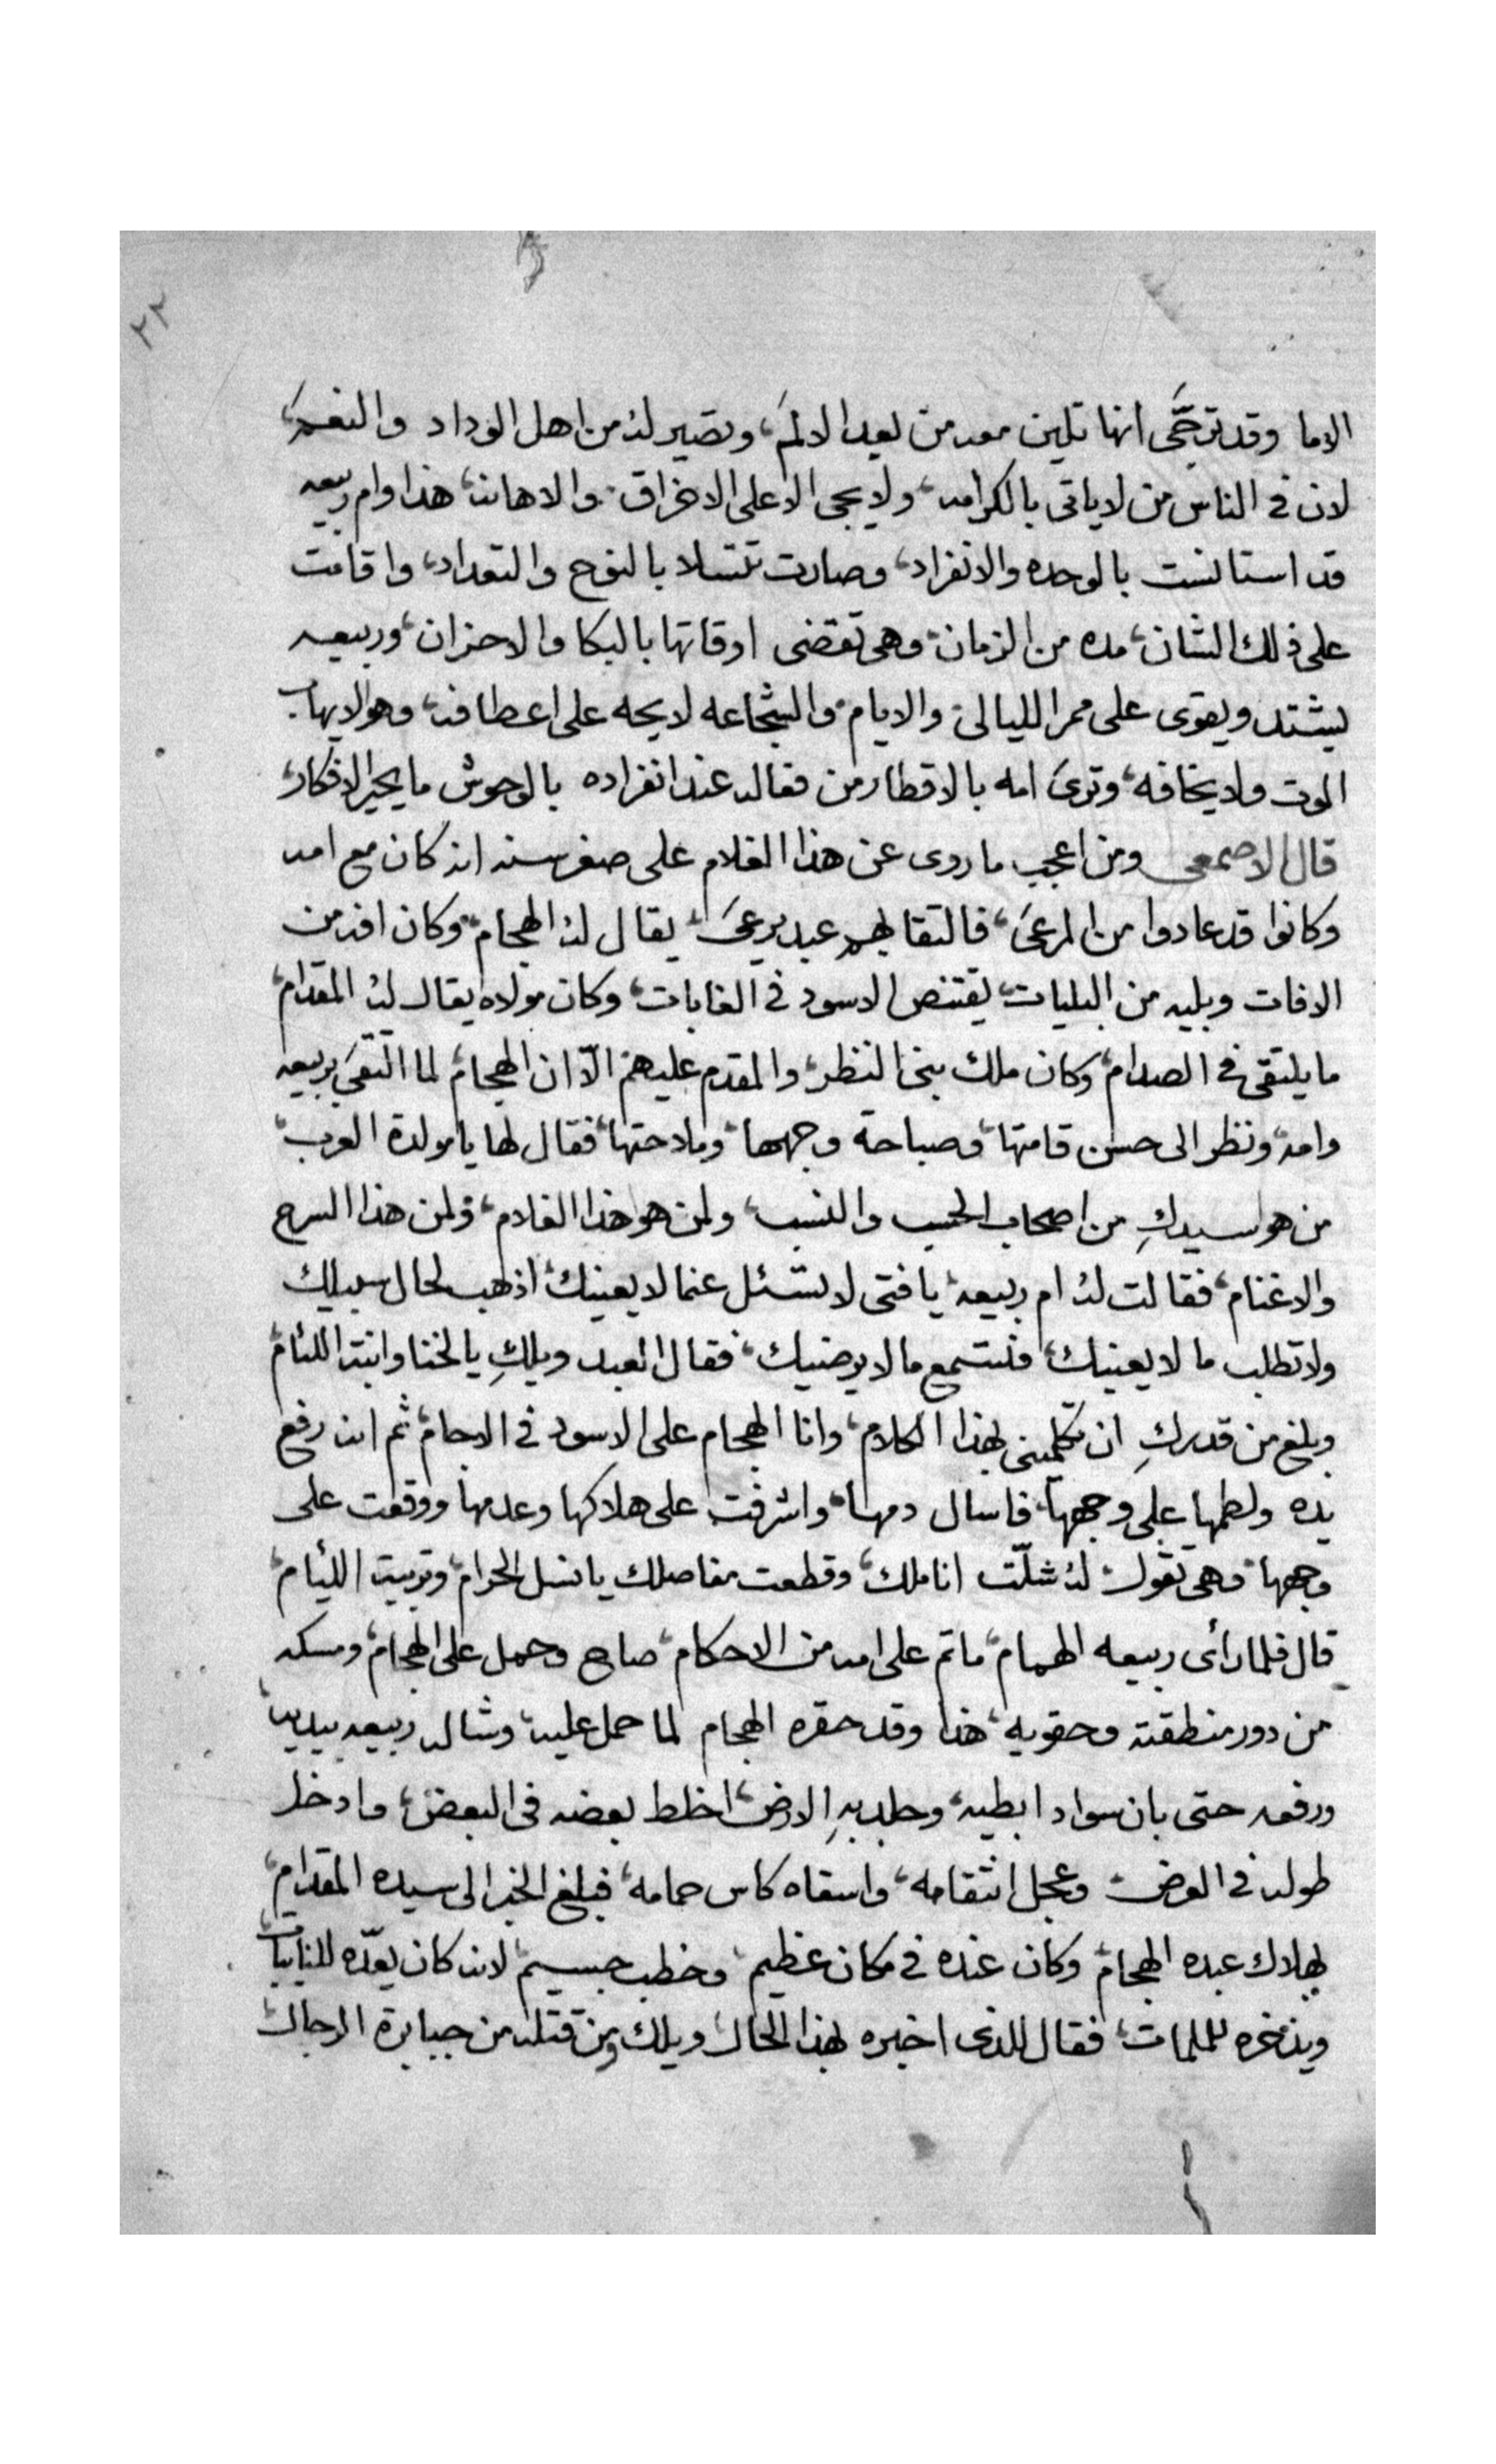 ٢٢
الاما وقد ترجَّى انها تلين معه من بعد الالم، وتصير له من اهل الوداد والنعم،
لان في الناس من لا ياتى بالكرامه، ولا يجى الا على الاخراق، والاهانه، هذا وام ربيعه
قد استانست بالوحده والانفراد، وصارت تتسلا بالنوح والتعداد، واقامت
على ذلك الشان، مده من الزمان، وهى تقضى اوقاتها بالبكا والاحزان، وربيعه
يشتد ويقوى على ممر الليالى، والايام، والشجاعه لايحه على اعطافه، وهو لا يهاب
الموت ولا يخافه، وترى امه بالاقطار من فعاله عند انفراده بالوحوش ما يحير الافكار،
قال الاصمعى ومن اعجب ما روى عن هذا الغلام على صغر سنه انه كان مع امه
وكانوا قد عادوا من المرعى، فالتقا بهم عبد يرعى، يقال له الهجام، وكان افه من
الافات وبليه من البليات، يقتنص الاسود في الغابات، وكان مولاه يقال له المقدام،
ما يلتقى في الصدام، وكان ملك بنى النظر، والمقدم عليهم الّا ان الهجام، لما التقى بربيعه
وامه، ونظر الى حسن قامتها، وصباحة وجهها، وملاحتها، فقال لها يا مولدة العرب،
من هو سيدكِ من اصحاب الحسب والنسب، ولمن هو هذا الغلام، ولمن هذا السرح
والاغنام، فقالت له ام ربيعه، يا فتى لا تسئل عنما لا يعينك، اذهب لحال سبيلك
ولا تطلب ما لا يعينك، فتستمع ما لا يرضيك، فقال العبد ويلكِ يا لخنا وابنة اللئام
وبلغ من قدركِ ان تكلمينى بهذا الكلام، وانا الهجام على الاسود في الاجام، ثم انه رفع
يده ولطمها على وجهها، فاسال دمها، واشرفت على هلاكها وعدمها ووقعت على
وجهها، وهى تقول، له شلّت اناملك، وقطعت مفاصلك يا نسل الحرام، وتربية الليام،
قال فلما رأى ربيعه الهمام، ما تم على امه من الاحكام، صاح وحمل على الهجام، ومسكه
من دور منطقته وحقويه، هذا وقد حقره الهجام لما حمل عليه، وشاله ربيعه بيديه،
ورفعه حتى بان سواد ابطيه، وجلد بهِ الارض، اخلط بعضه في البعض، وادخل
طوله في العرض، وعجل انتقامه، واسقاه كاس حمامه، فبلغ الخبر الى سيده المقدام،
بهلاك عبده الهجام، وكان عنده في مكان عظيم، وخطب جسيم، لانه كان يعدّه للنايبات
ويذخره للملمات، فقال للذى اخبره بهذا الحال، ويلك ومن قتله من جبابرة الرجال